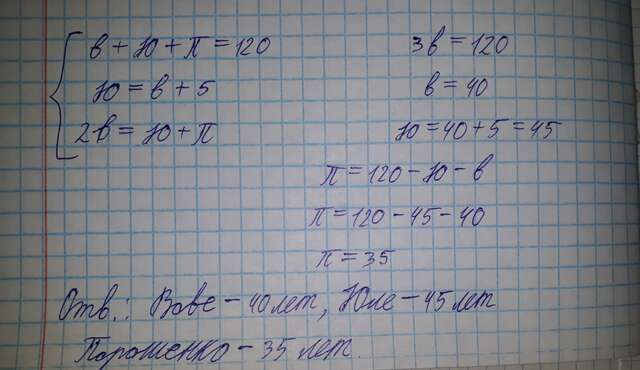 в + Ю + П = 120
Ю = в + 5
2в = Ю + П
3в = 120
в = 40
Ю = 40 + 5 = 45
П = 120 - Ю - в
П = 120 - 45 - 40
П = 35
Отв.: Вове - 40 лет, Юле - 45 лет
Порошенко - 35 лет.